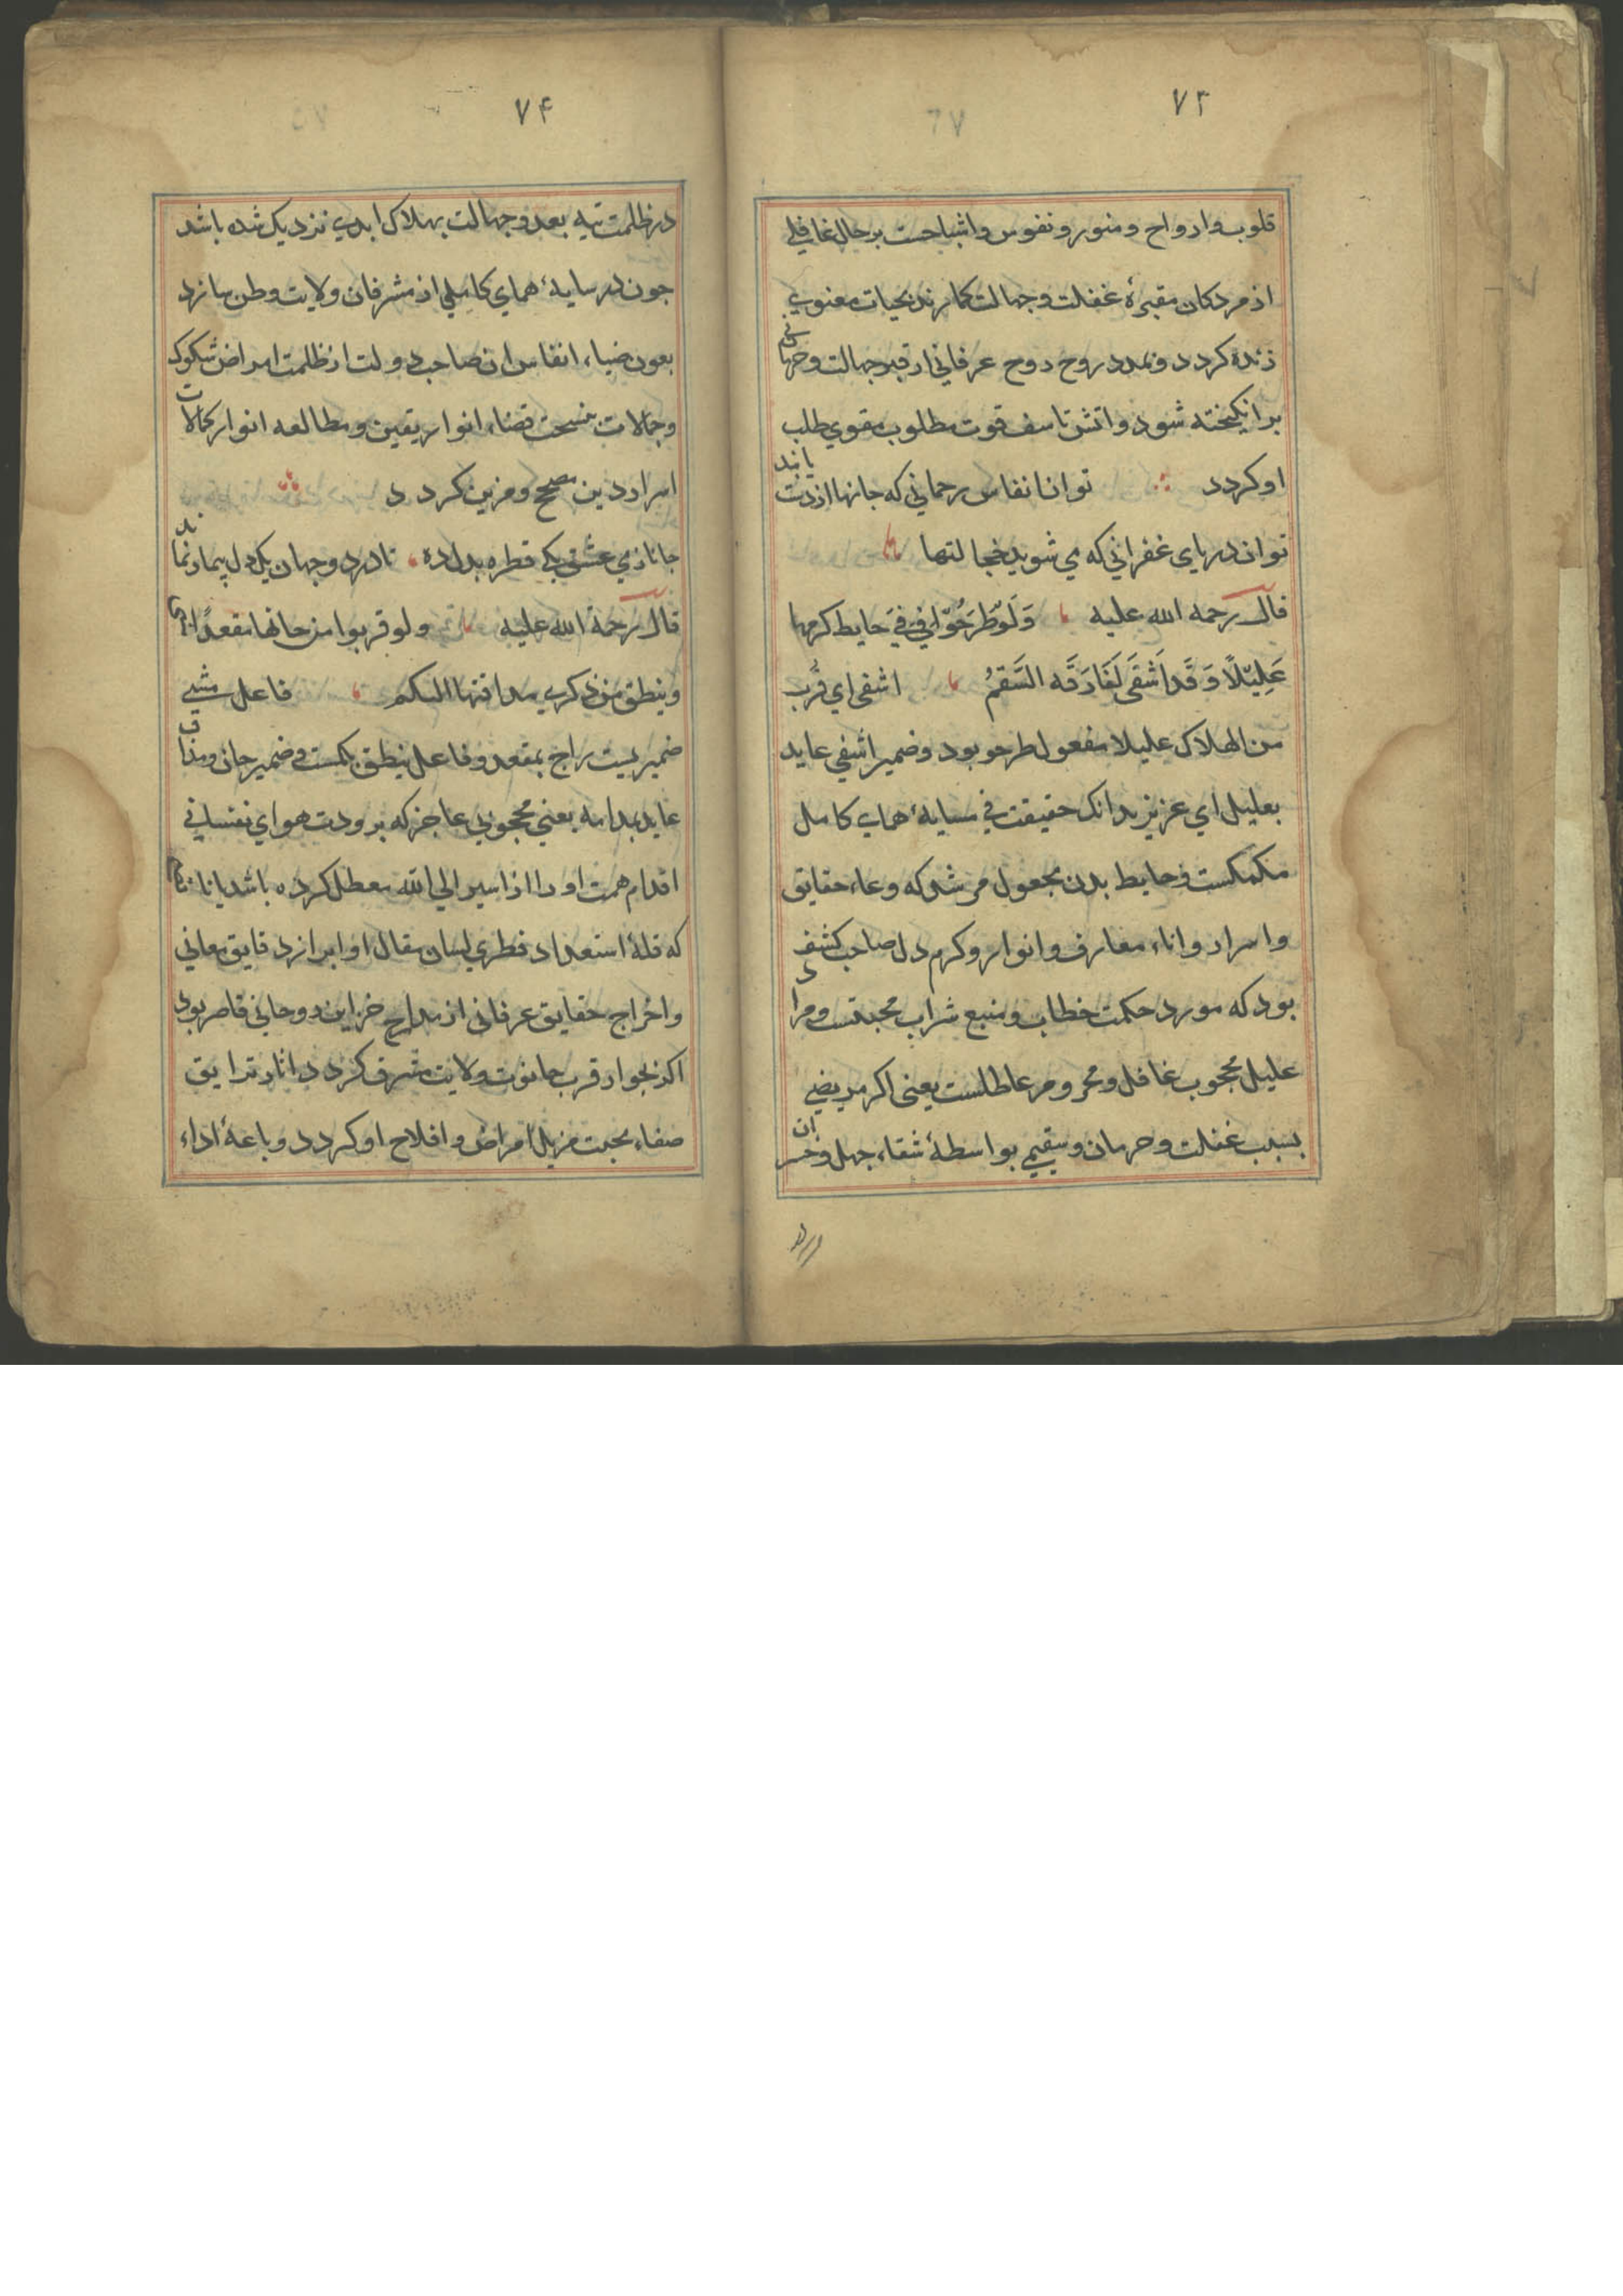 ۷۳
قلوب و ارواح و منور و نفوس و اشباحست بر حال غافلی
از مردکان مقبرهٔ غفلت و جهالت کمارند بحیات معنوی
زنده کردد و بمدد روح روح عرفانی از قبر جهالت و حرمانی
برانکیخته شود و اتش تاسف قوت مطلوب مقوی طلب
او کردد توان انفاس رحمانی که جانها از دمت یابند
توان دریای غفرانی که می شوید خجالتها
قال رحمه الله علیه وَلَوْ طَرَحُوْا فِیْ فَیْ حایط کرمها
عَلِیْلًا وَقَد اَشْفَی لَفَارَقَه السَّقمُ اشفی ای قرُب
من الهلاک علیلا مفعول طرحو بود و ضمیر اشفی عاید
بعلیل ای عزیز بدانک حقیقت فی سایهٔ همای کامل
مکملست و حایط بدن مجعول مرشد که وعاء حقایق
و اسرار و اناء معارف و انوار و کرم دل صاحب کشف
بود که مورد حکمت خطاب و منبع شراب محبتست و مراد
علیل محجوب غافل و محروم عاطلست یعنی اکر مریضی
بسبب غفلت و حرمان و سقیمی بواسطهٔ شقاء جهل و خسران
در
۷۴
در ظلمت تیه بعد و جهالت بهلاک ابدی نزدیک شده باشد
جون در سایهٔ همای کاملی از مشرفان ولایت وطن سازد
بعون ضیاء انفاس ان صاحب دولت از ظلمت امراض شکوک
و جهالات بفسحت فضاء انوار یقین و مطالعه انوار کمالات
اسرار دین مصحح و مزین کردد
جانا ز می عشق یکی قطره بدل ده تا در دو جهان یک دل بیمار نماند
قال رحمة الله علیه ولو قربوا من حانها مقعدًا
و ینطق من ذکری مذاقتها البکم فاعل مشی
ضمیریست راجع بمقعد و فاعل ینطق بکمست و ضمیر حان و مذاق
عاید بمدامه یعنی محجوبی عاجز که برودت هوای نفسانی
اقدام همت او را از سیر الی الله معطل کرده باشد یا ناتمام
که قلهٔ استعداد فطری لسان مقال او ابراز دقایق معانی
و اخراج حقایق عرفانی از مدارج خزاین روحانی قاصر بود
اکر بجوار قرب حانوت ولایت مشرف کردد اثار تریاق
صفاء محبت مزیل امراض و افلاح او کردد و باعهٔ اداء